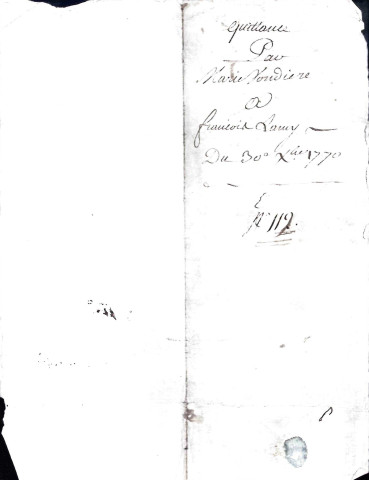 quittance
Par
Marie Vondiere
A
francois Lamy
Du 30e Xbre 1770
E
No 119.